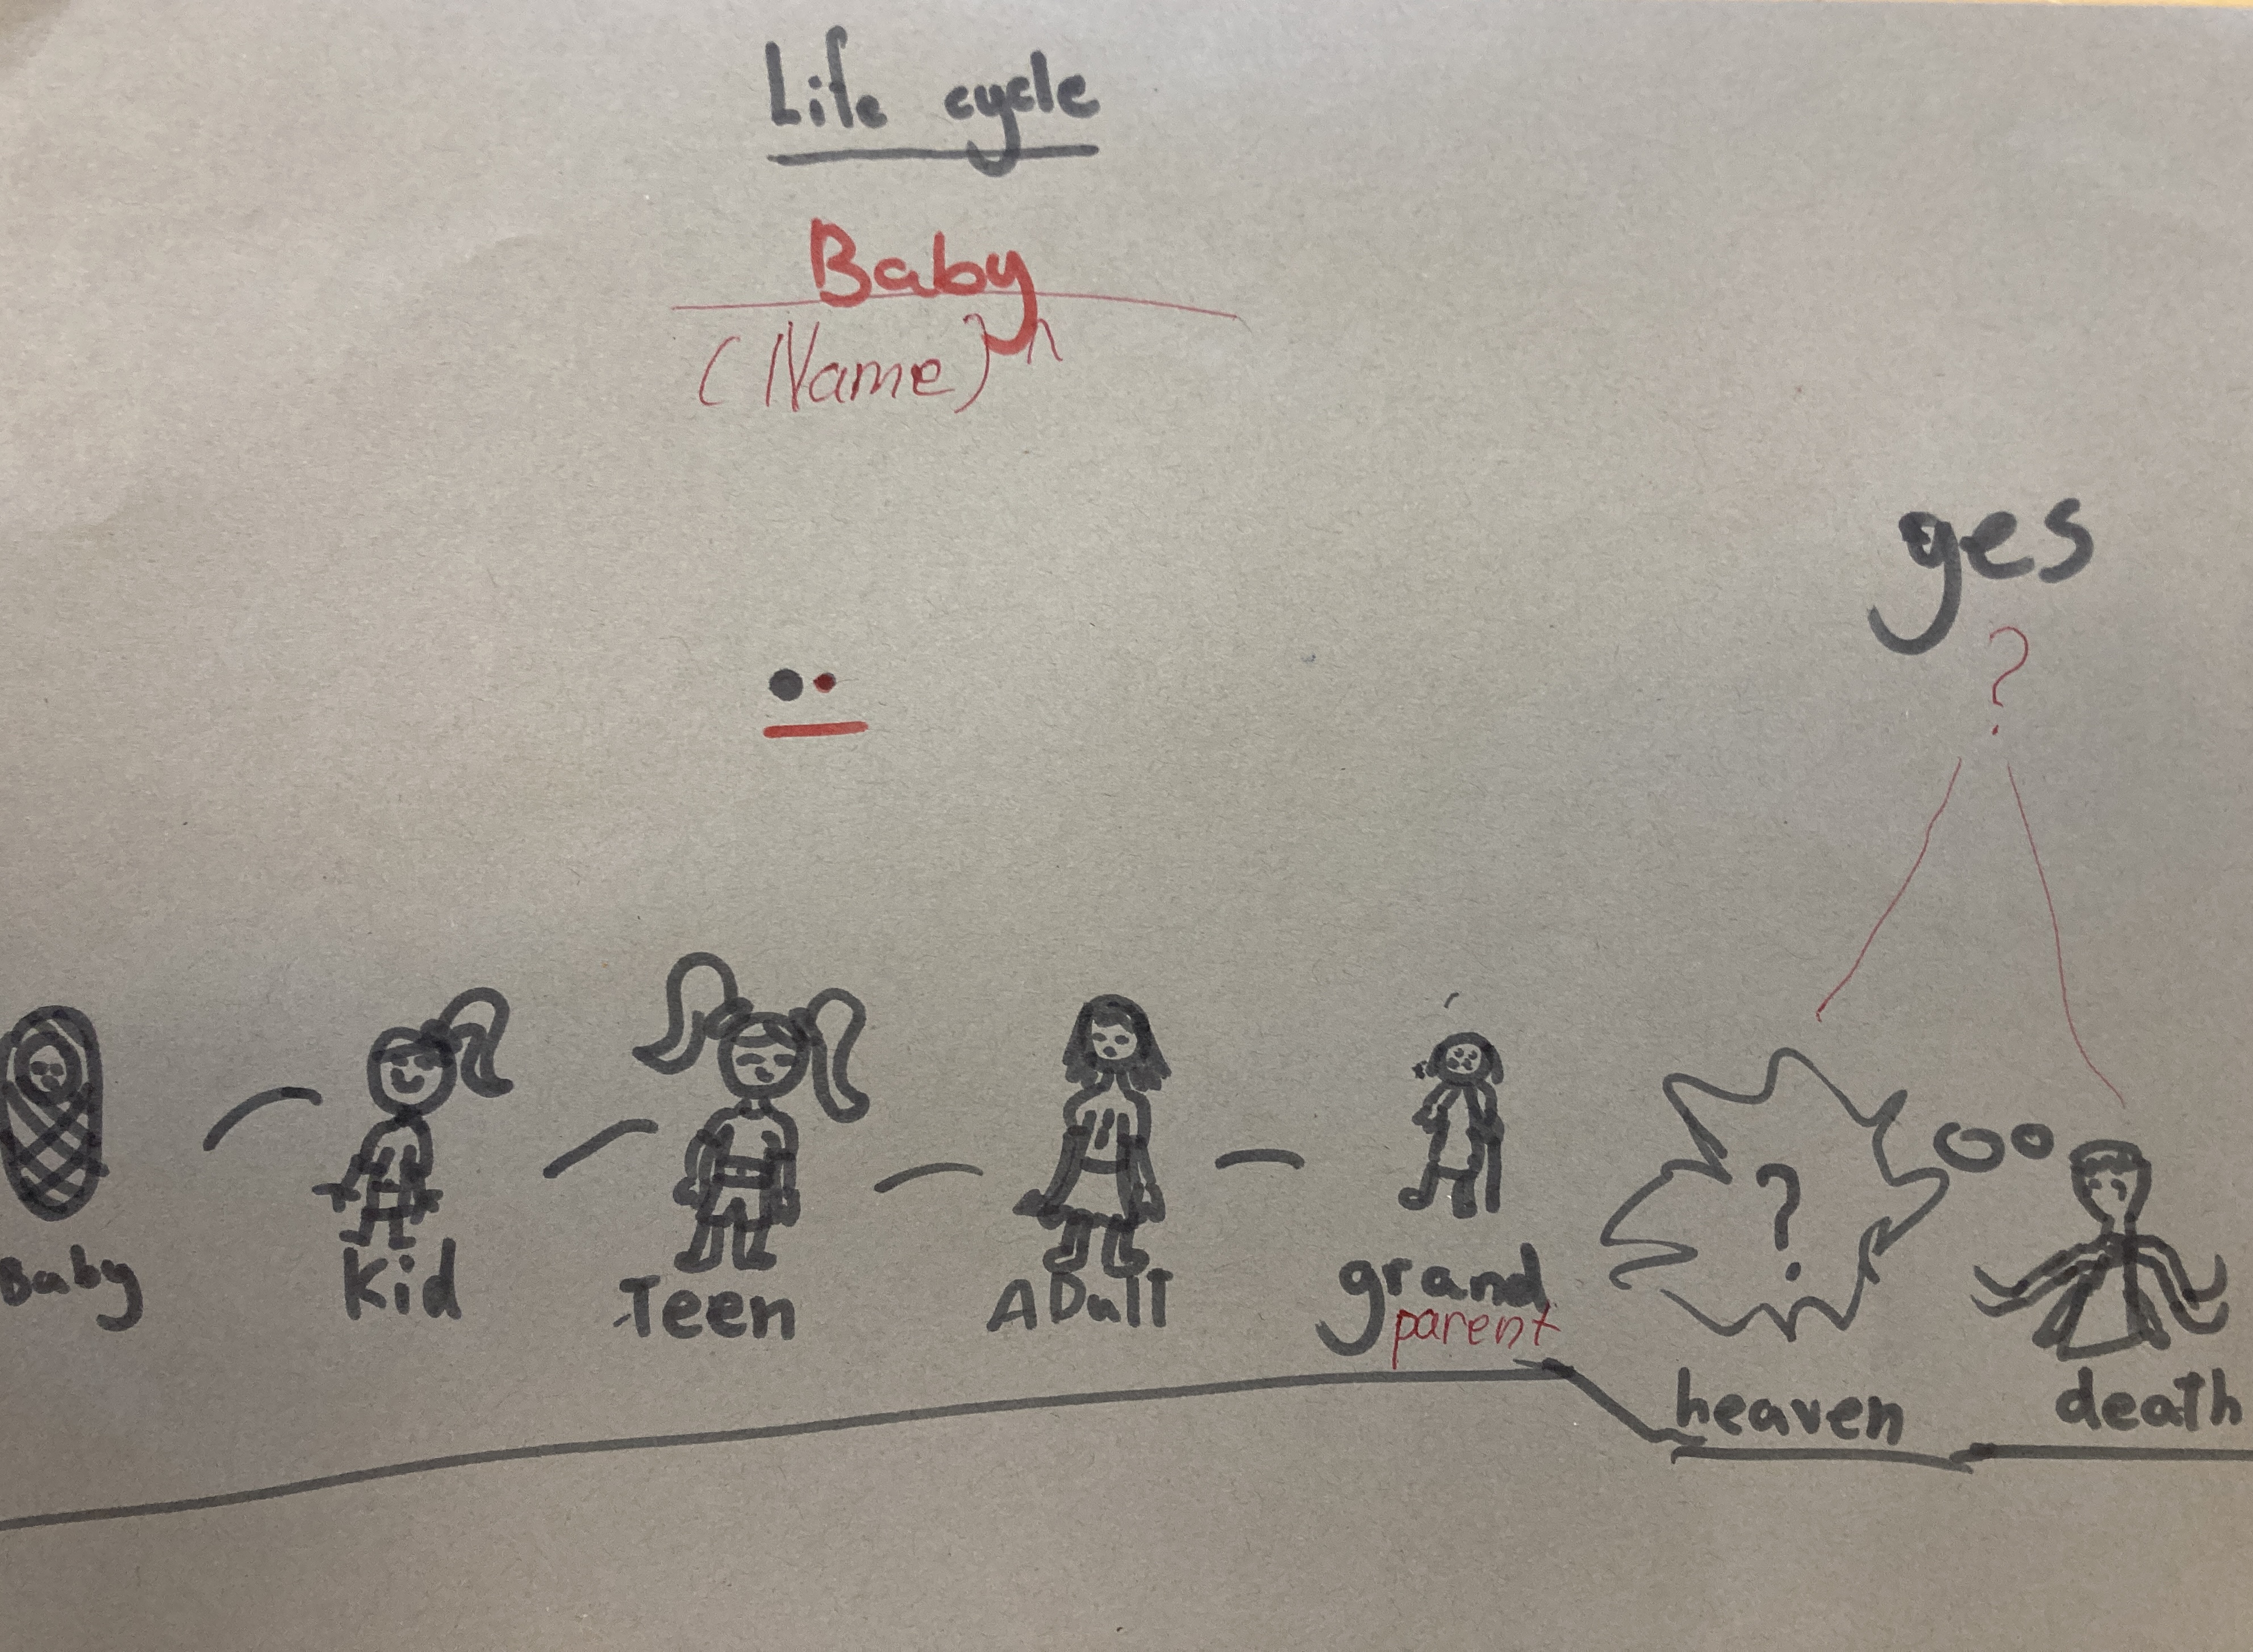 Life cycle
Baby
(Name)
yes
?
?
Baby
Kid
Teen
ADulT
grand
parent
heaven
death